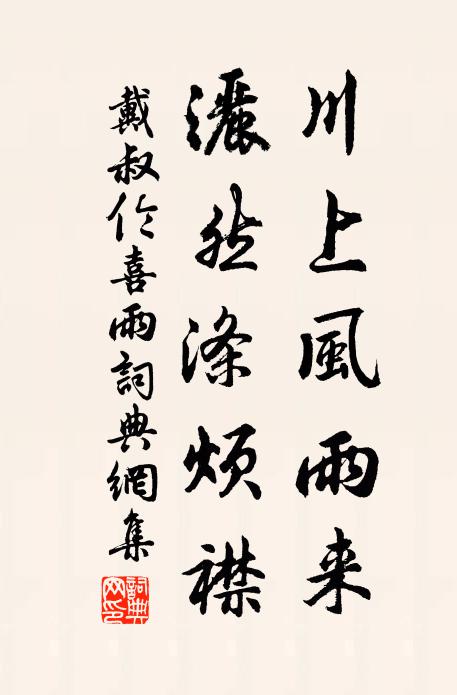 川上風雨来
灑然滌煩襟
戴叔伦喜雨詞典網集
詞典
网印